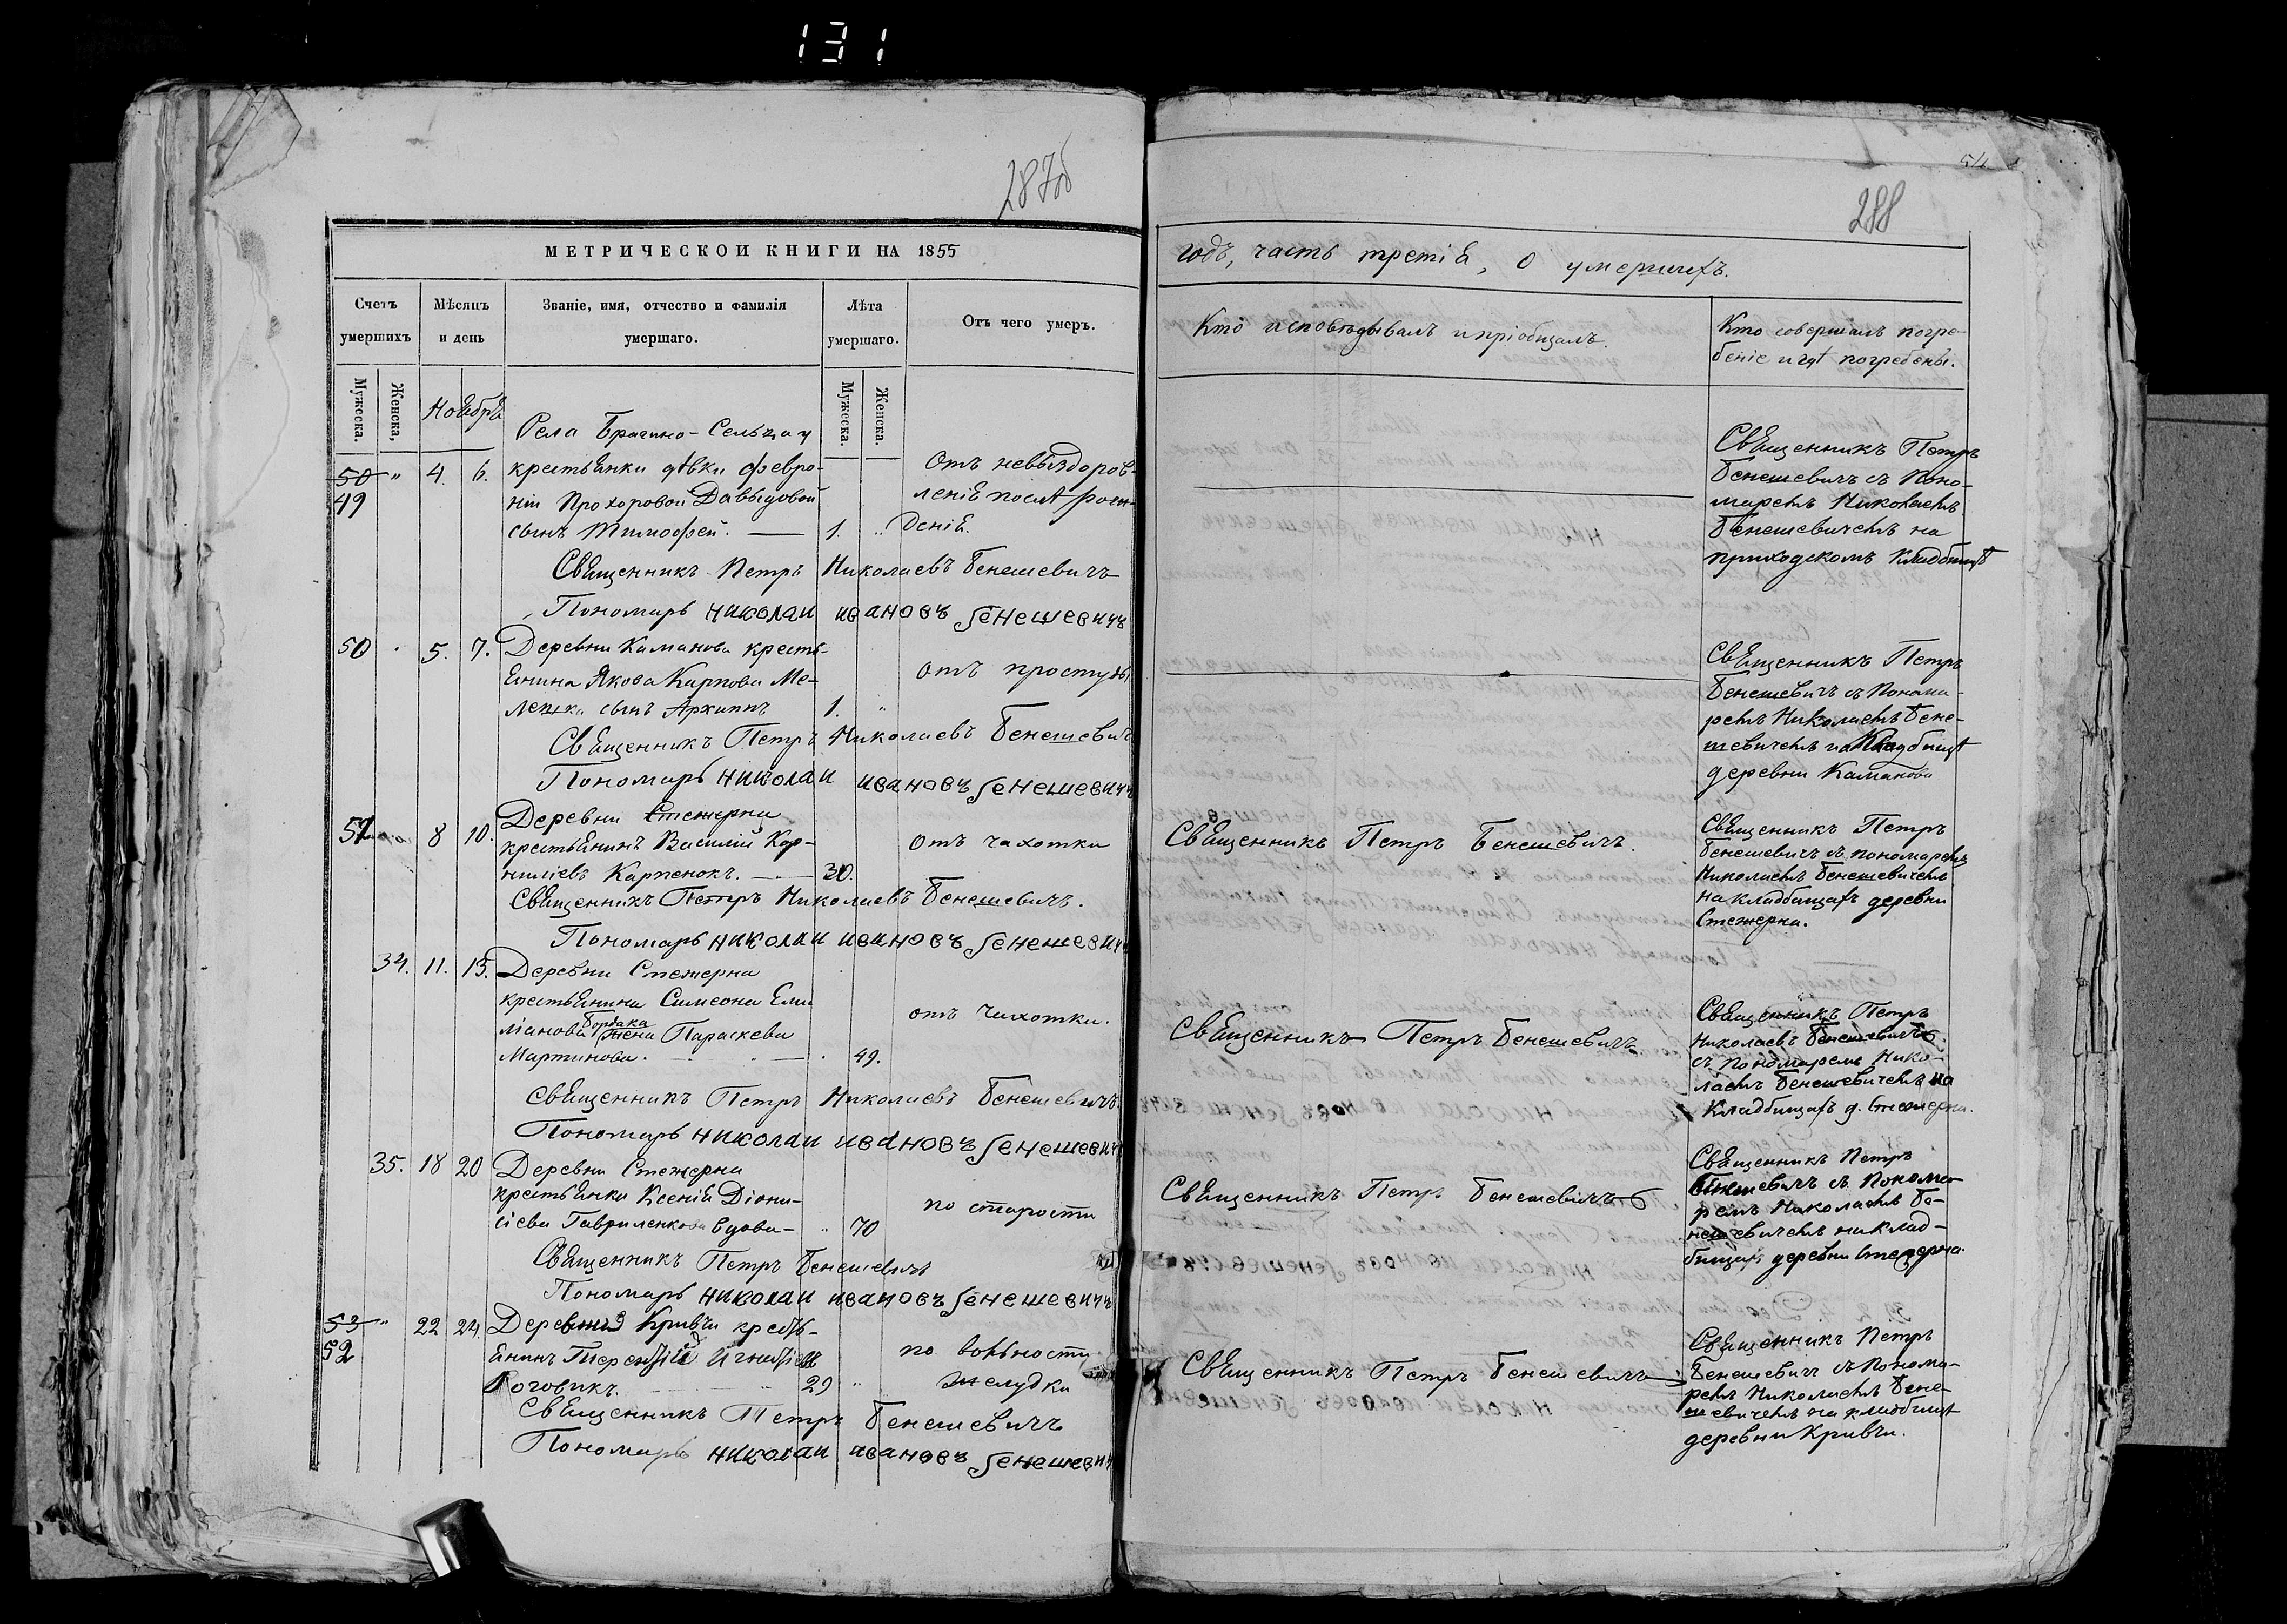 131
287об
54
288
МЕТРИЧЕСКОЙ КНИГИ НА 1855
годъ, часть третія, о умершихъ.
Счетъ умершихъ
Мѣсяцъ и день
Званіе, имя, отчество и фамилія умершаго.
Лѣта умершаго.
Отъ чего умеръ.
Кто исповѣдывалъ и пріобщалъ.
Кто совершалъ погре-
беніе и гдѣ погребены.
Мужеска.
Женска,
Мужеска.
Женска.
Ноября
Села Брагино-Сельца
50 " 4. 6. крестьянки дѣвки Февро-
49
ніи Прохоровой Давыдовой
сынъ Тимофей. — 1. "
Отъ невыздоров-
ленія послѣ рож-
денія.
Священникъ Петръ
Бенешевичъ съ Поно-
маремъ Николаемъ
Бенешевичемъ на
приходскомъ кладбищѣ
Священникъ Петръ Николаевъ Бенешевичъ
Пономарь Николай Ивановъ Бенешевичъ
50 " 5. 7. Деревни Каманова кресть-
янина Якова Карпова Ме-
лешка сынъ Архипъ 1. "
отъ простуды
Священникъ Петръ
Бенешевичъ съ Понома-
ремъ Николаемъ Бене-
шевичемъ на Кладбищѣ
деревни Каманова
Священникъ Петръ Николаевъ Бенешевичъ
Пономарь Николай Ивановъ Бенешевичъ
51 8 10. Деревни Стежерна
крестьянинъ Василій Кор-
ниліевъ Карпенокъ. — 30.
отъ чахотки
Священникъ Петръ Бенешевичъ.
Священникъ Петръ
Бенешевичъ съ пономаремъ
Николаемъ Бенешевичемъ
на кладбищахъ деревни
Стежерна.
Священникъ Петръ Николаевъ Бенешевичъ.
Пономарь Николай Ивановъ Бенешевичъ
34. 11. 13. Деревни Стежерна
крестьянина Симеона Еми
ліанова Бордака жена Параскева
Мартинова. — 49.
отъ чахотки.
Священникъ Петръ Бенешевичъ
Священникъ Петръ
Николаевъ Бенешевичъ
съ Пономаремъ Нико-
лаемъ Бенешевичемъ на
Кладбищахъ д. Стежерна.
Священникъ Петръ Николаевъ Бенешевичъ
Пономарь Николай Ивановъ Бенешевичъ
35. 18 20 Деревни Стежерна
крестьянки Ксенія Діони-
сіева Гавриленкова вдова — " 70
по старости
Священникъ Петръ Бенешевичъ
Священникъ Петръ
Бенешевичъ съ Понома-
ремъ Николаемъ Бе-
нешевичемъ на клад-
бищахъ деревни Стежерна.
Священникъ Петръ Бенешевичъ
Пономарь Николай Ивановъ Бенешевичъ
53 " 22 24. Деревни Кривчи кресть-
52
янинъ Терентій Игнатіевъ
Роговикъ. 29 "
по
желудка
Священникъ Петръ Бенешевичъ
Священникъ Петръ
Бенешевичъ съ Понома-
ремъ Николаемъ Бене-
шевичемъ на кладбищѣ
деревни Кривчи.
Священникъ Петръ Бенешевичъ
Пономарь Николай Ивановъ Бенешевичъ